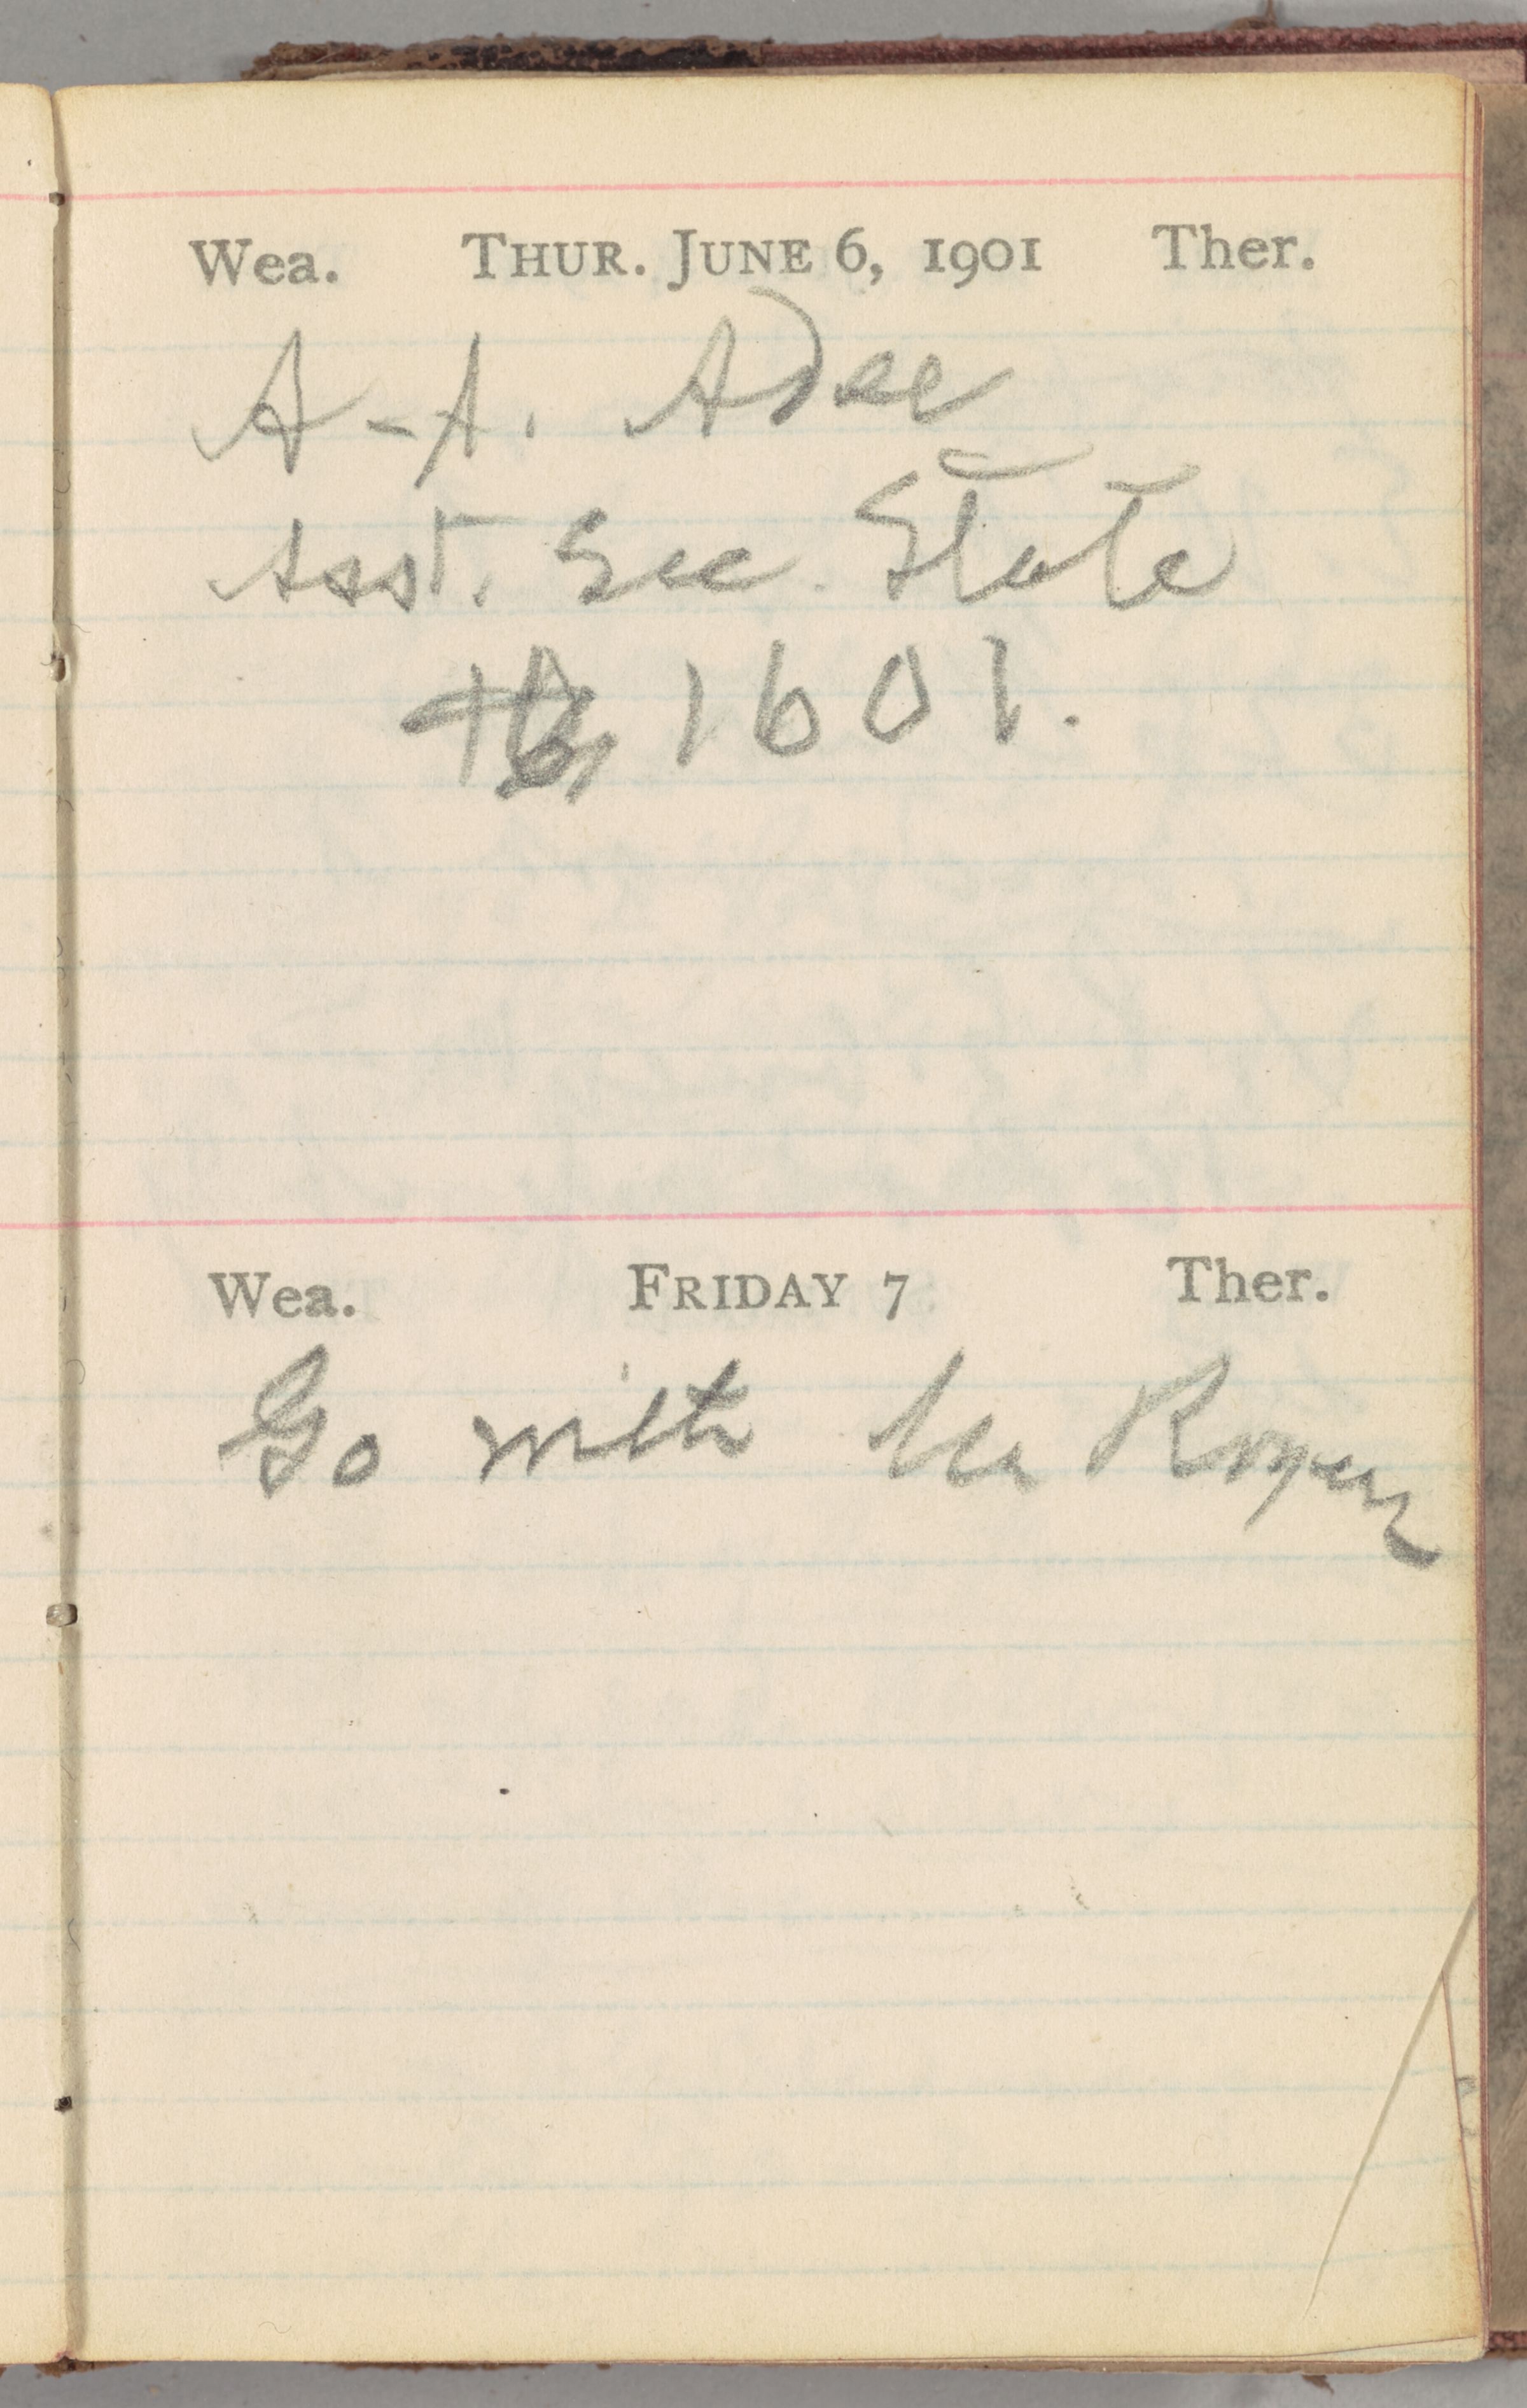 Wea. THUR. JUNE 6, 1901 Ther.
A-A. Adee
Asst. Sec. State
1601.
Wea. FRIDAY 7 Ther.
Go with Mr Rogers